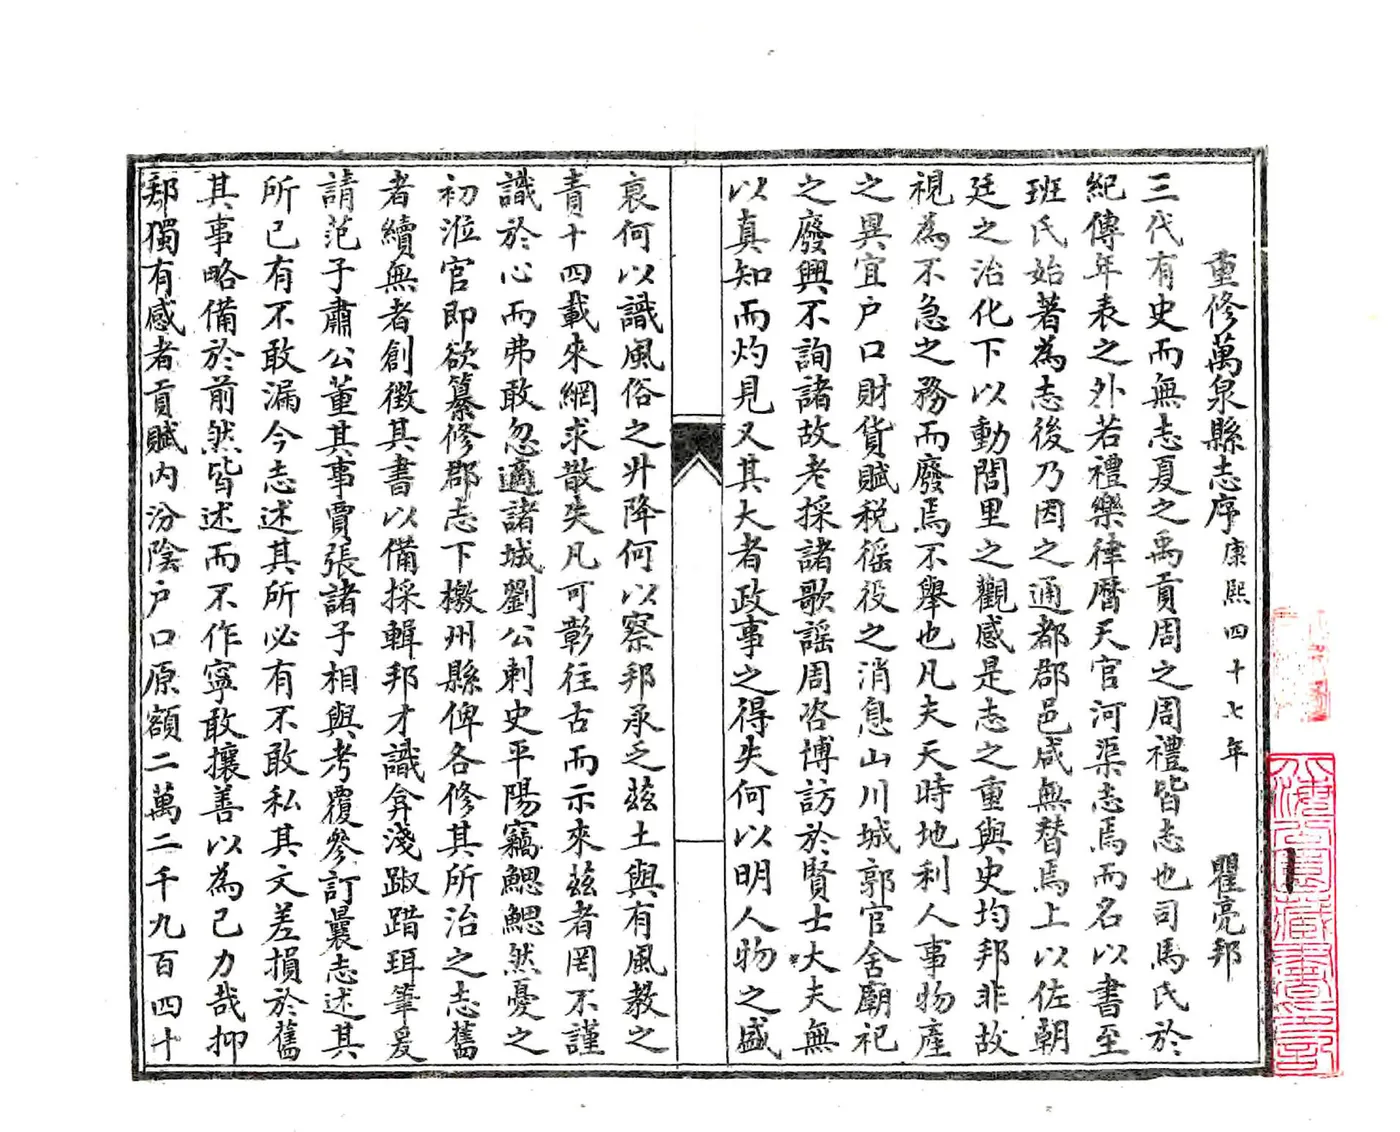 重修萬泉縣志序 康熙四十七年 瞿亮邦
三代有史而無志夏之禹貢周之周禮皆志也司馬氏於
紀傳年表之外若禮樂律曆天官河渠志焉而名以書至
班氏始著為志後乃因之通都郡邑咸無替焉上以佐朝
廷之治化下以動閭里之觀感是志之重與史均邦非故
視為不急之務而廢焉不舉也凡夫天時地利人事物產
之異宜户口財貨賦税徭役之消息山川城郭官舍廟祀
之廢興不詢諸故老採諸歌謡周咨博訪於賢士大夫無
以真知而灼見又其大者政事之得失何以明人物之盛
衰何以識風俗之升降何以察邦承乏兹土與有風教之
責十四載來網求散失凡可彰往古而示來兹者罔不謹
識於心而弗敢忽適諸城劉公刺史平陽竊鰓鰓然憂之
初涖官即欲纂修郡志下檄州縣俾各修其所治之志舊
者續無者創徵其書以備採輯邦才識弇淺踧踖珥筆爰
請范子肅公董其事賈張諸子相與考覆參訂曩志述其
所已有不敢漏今志述其所必有不敢私其文差損於舊
其事略備於前然皆述而不作寧敢攘善以為己力哉抑
邦獨有感者貢賦内汾陰户口原額二萬二千九百四十